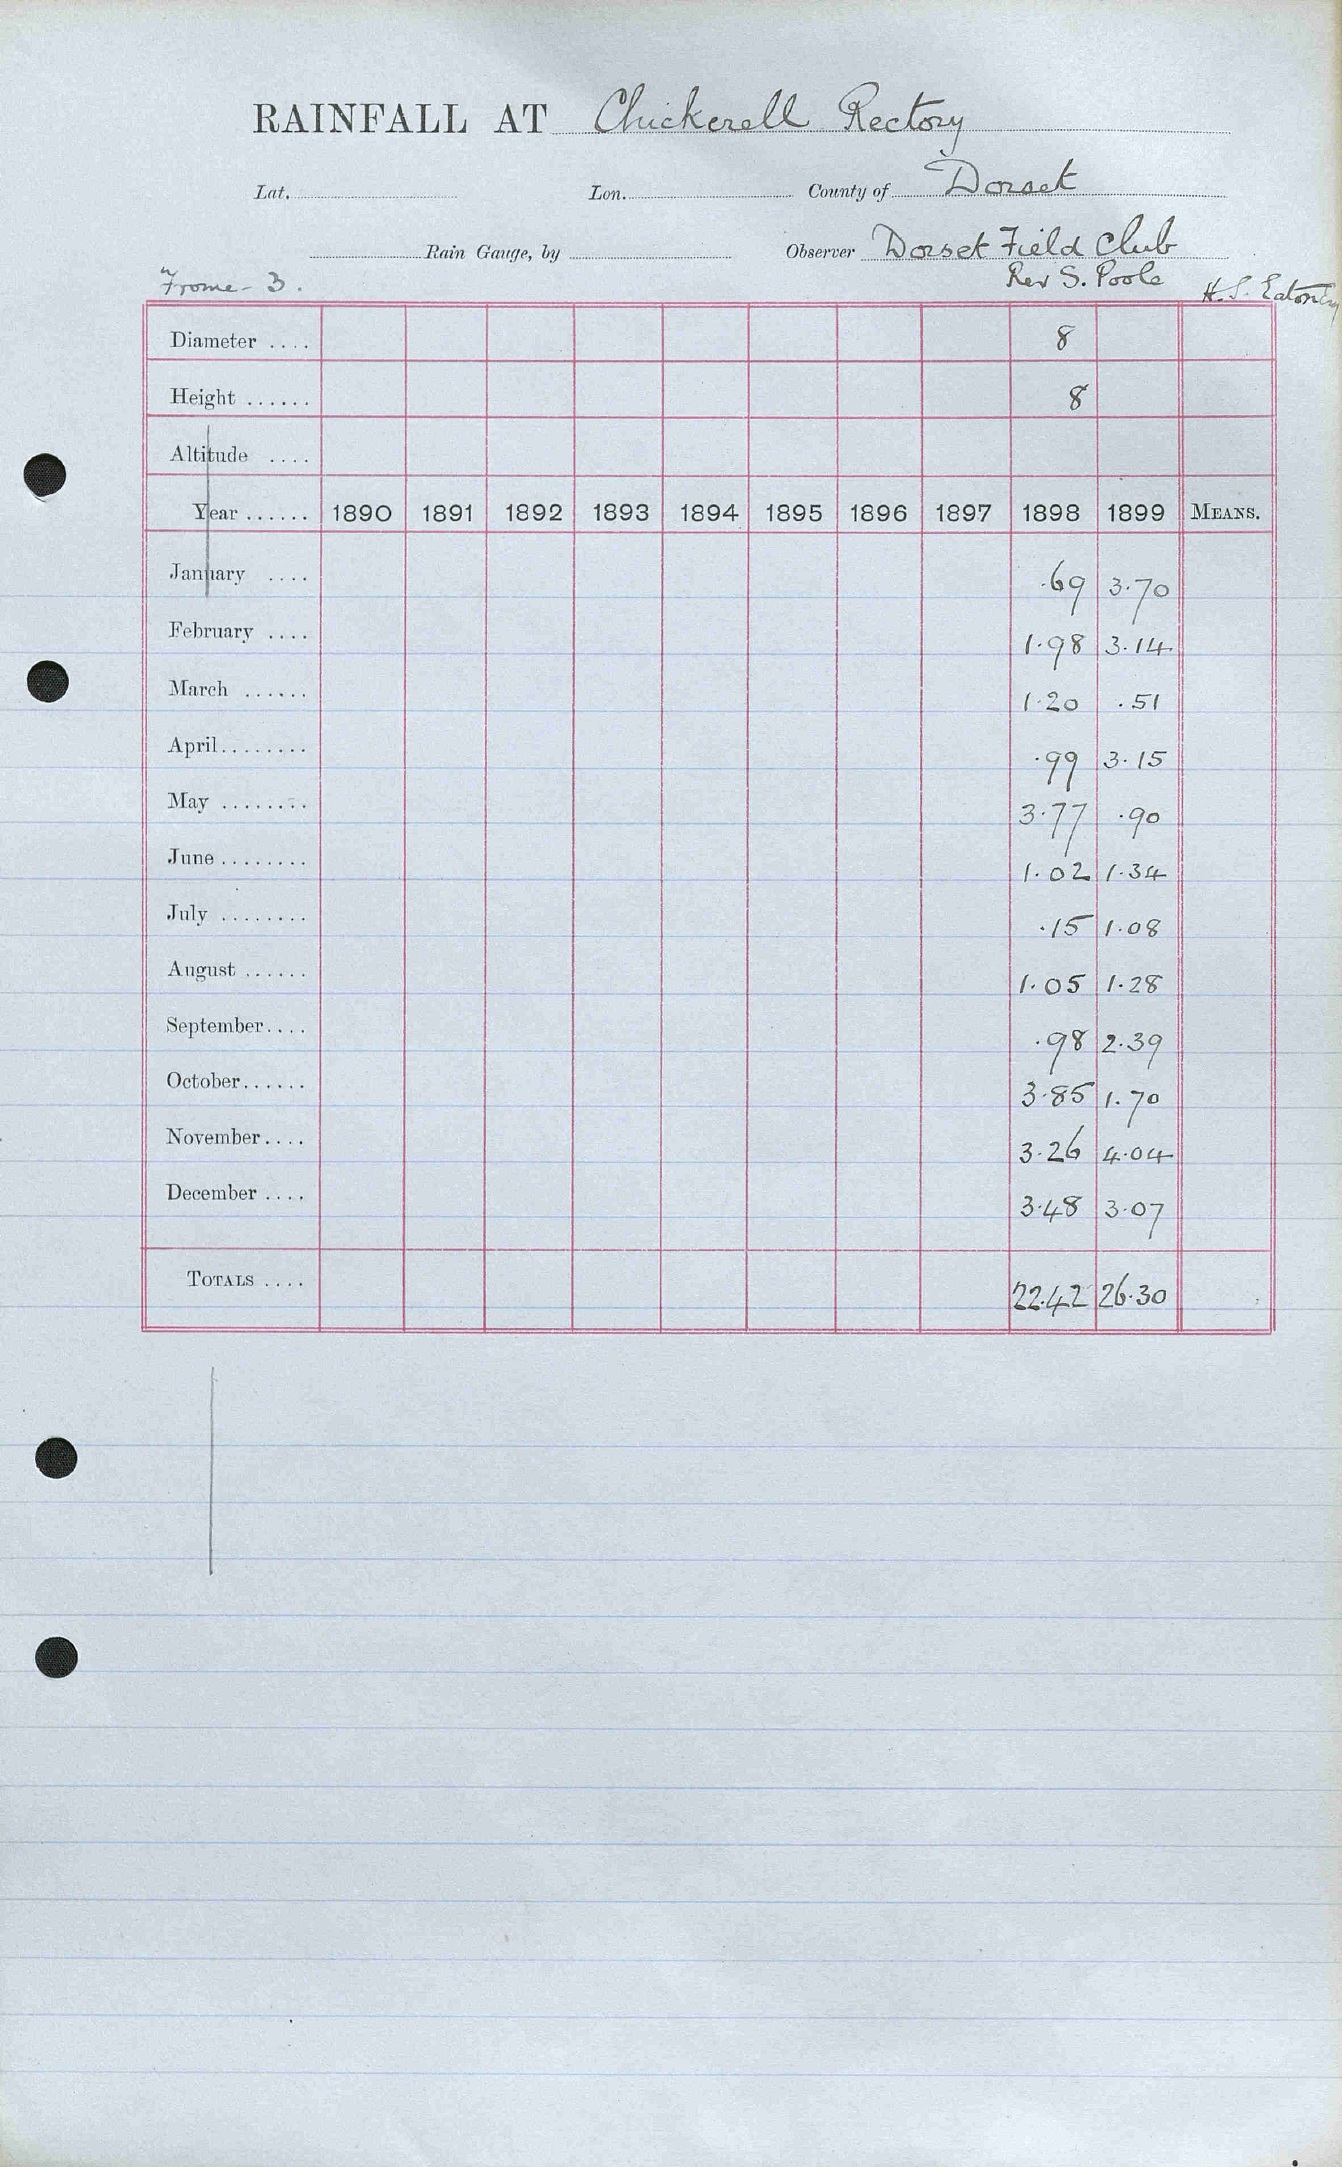 RAINFALL AT Chickerell Rectory
Lat. Lon. County of Dorset
Rain Gauge, by Observer Dorset Field Club
Frome - 3. Rev S. Poole H. S. Eaton
Diameter .... 8
Height ...... 8
Altitude ....
Year ...... 1890 1891 1892 1893 1894 1895 1896 1897 1898 1899 MEANS.
January .... .69 3.70
February .... 1.98 3.14
March ...... 1.20 .51
April........ .99 3.15
May ........ 3.77 .90
June ........ 1.02 1.34
July ........ .15 1.08
August ...... 1.05 1.28
September.... .98 2.39
October...... 3.85 1.70
November.... 3.26 4.04
December .... 3.48 3.07
TOTALS .... 22.42 26.30